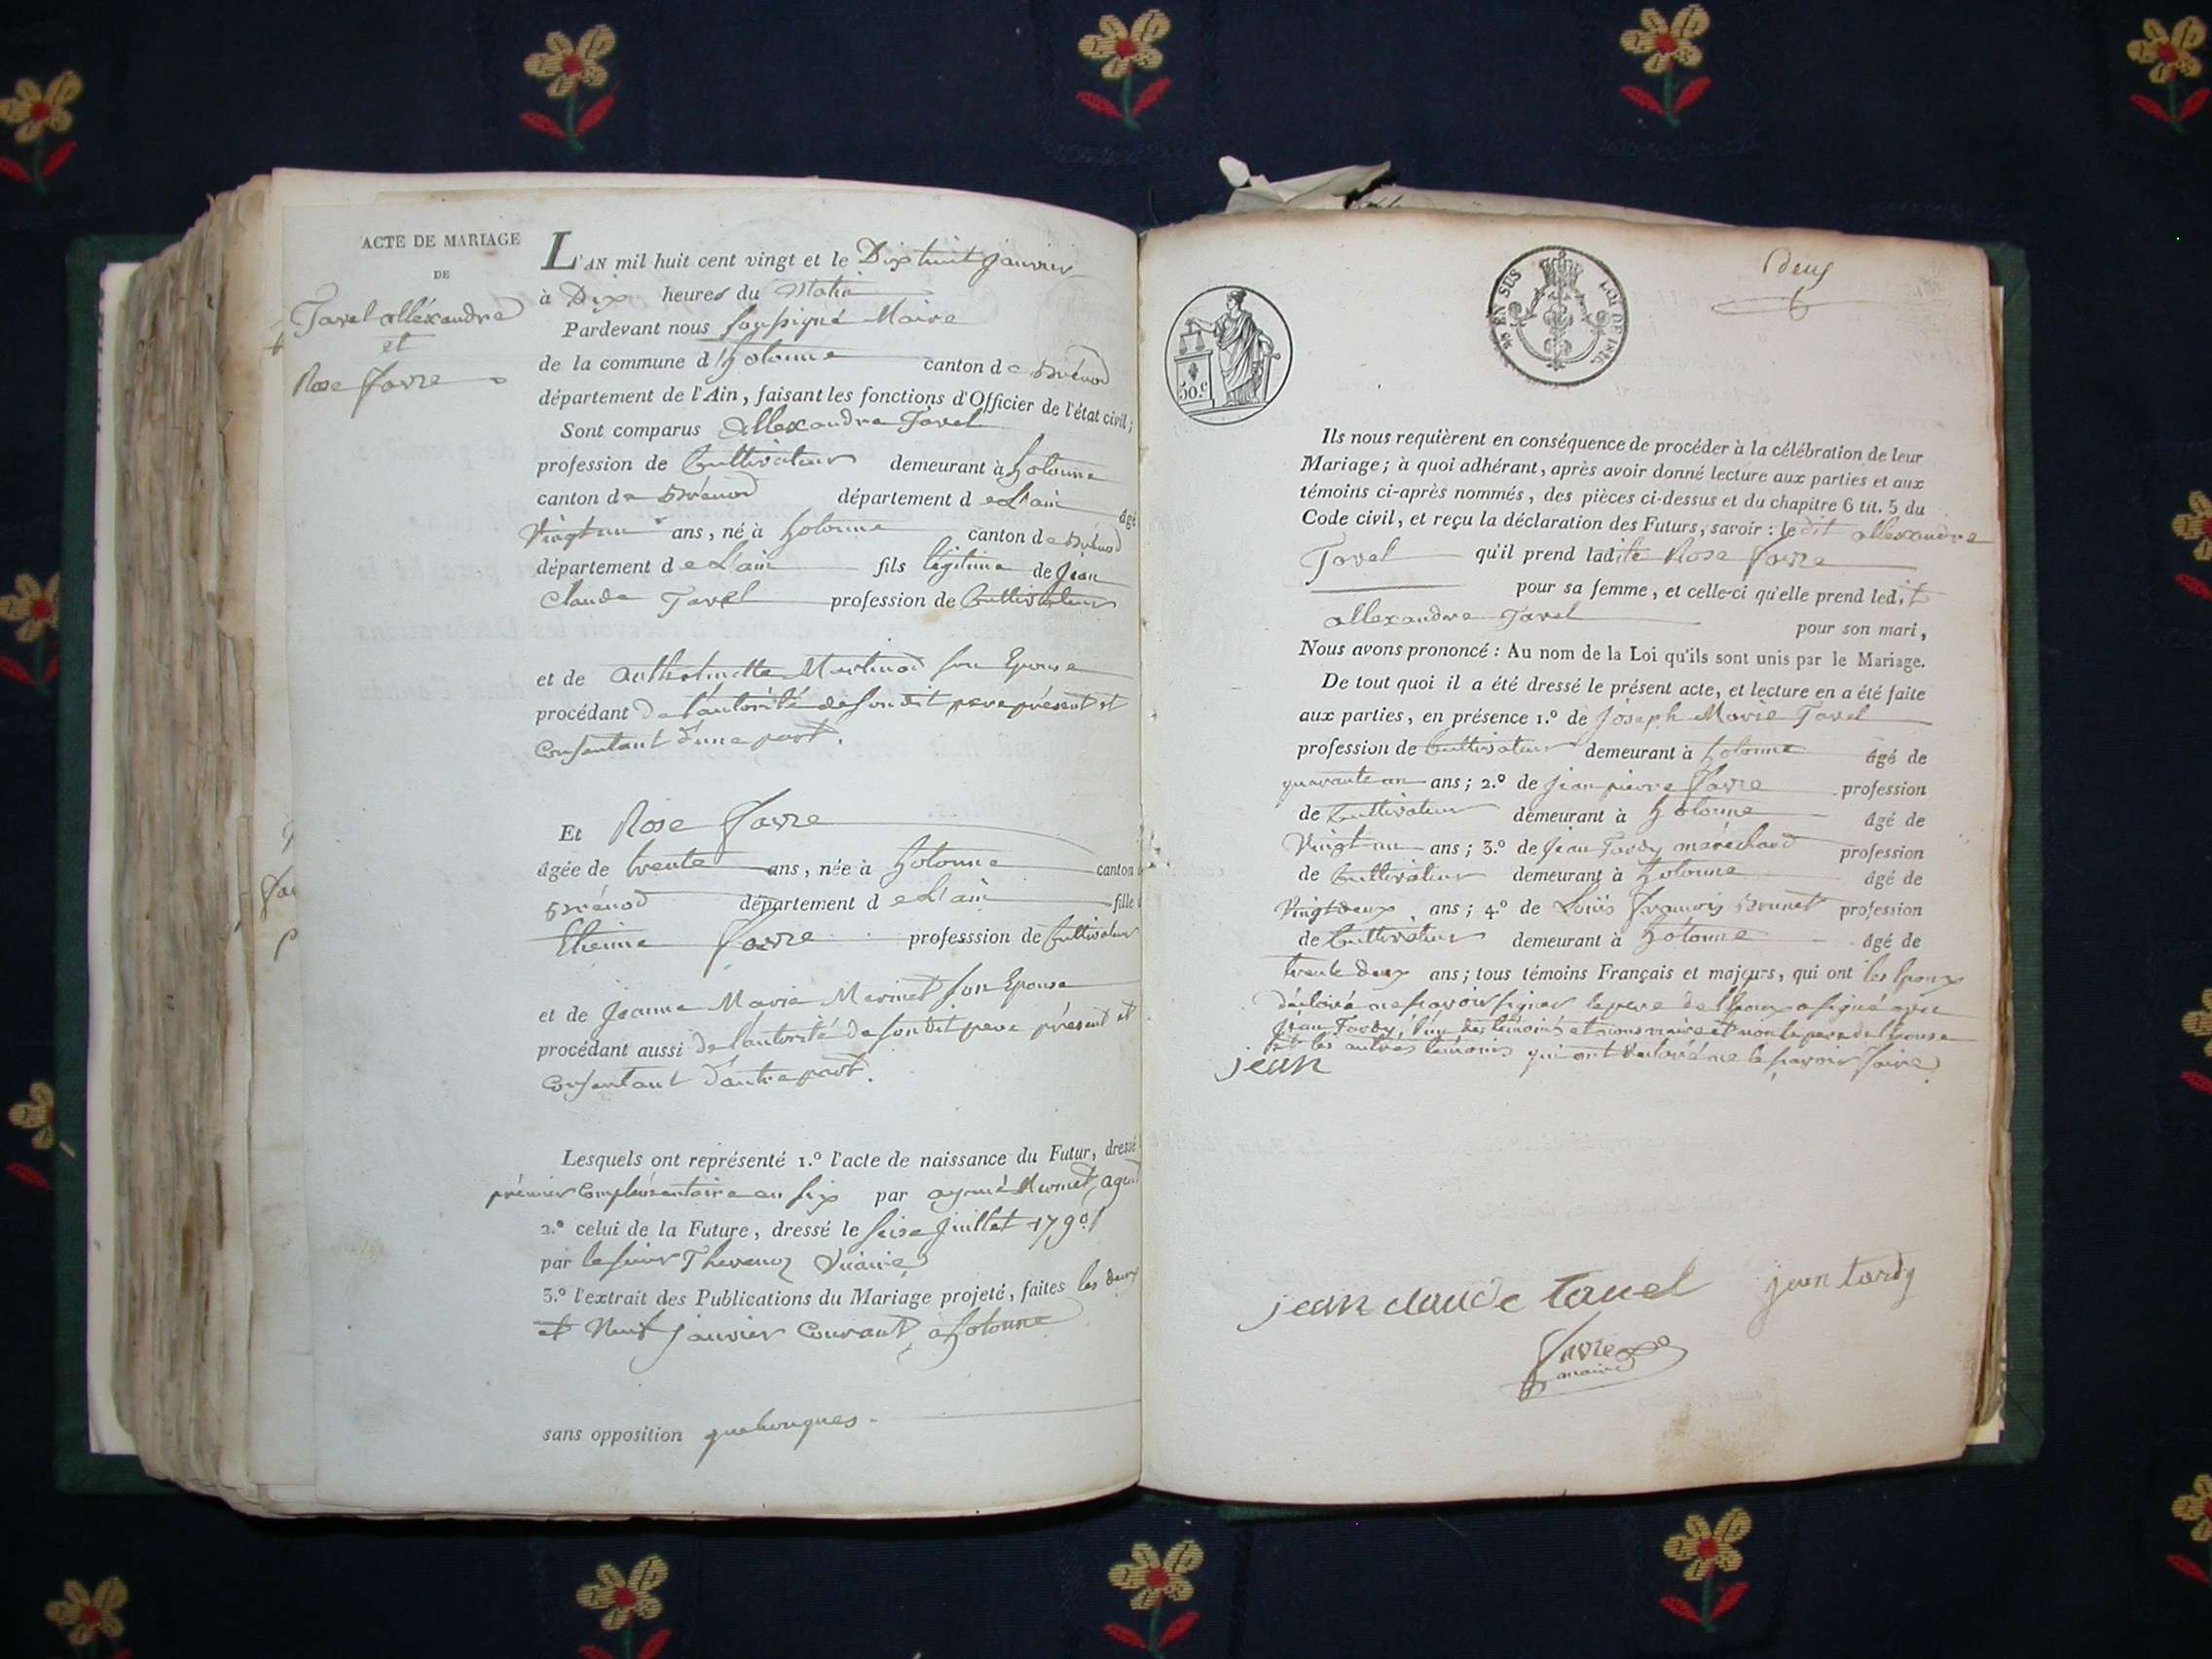 ACTE DE MARIAGE
DE
Tavel alléxandre
et
Rose favre
L'AN mil huit cent vingt et le Dix huit janvier
à Dix heures du Matin
Pardevant nous soussigné Maire
de la commune d'hotonne canton de Brénod
département de l'Ain, faisant les fonctions d'Officier de l'état civil;
Sont comparus Allexandre Tavel
profession de Cultivateur demeurant à hotonne
canton de Brénod département de L'ain âgé
Vingt un ans, né à hotonne canton de Brénod
département de L'ain fils légitime de Jean
Claude Tavel profession de Cultivateur
et de Anthoinette Martinod son Epouse
procédant de l'autorité de son dit pere présent et
Consentant d'une part.
Et Rose favre
âgée de trente ans, née à hotonne canton
Brénod département de L'ain fille
Etienne favre professsion de Cultivateur
et de Jeanne Marie Mermet son Epouse
procédant aussi de l'autorité de son dit pere présent et
Consentant d'autre part.
Lesquels ont représenté 1.º l'acte de naissance du Futur, dressé
prémier complémentaire an six par aymé Mermet, agent
2.º celui de la Future, dressé le seise juillet 1790
par le sieur Thevenoz Vicaire
3.º l'extrait des Publications du Mariage projeté, faites les deux
et Neuf janvier Courant, à hotonne
sans opposition quelconques.
deux
50.c
EN SUS
LOI DE 1816.
Ils nous requièrent en conséquence de procéder à la célébration de leur
Mariage; à quoi adhérant, après avoir donné lecture aux parties et aux
témoins ci-après nommés, des pièces ci-dessus et du chapitre 6 tit. 5 du
Code civil, et reçu la déclaration des Futurs, savoir: le dit allexandre
Tavel qu'il prend ladite Rose favre
pour sa femme, et celle-ci qu'elle prend ledit
allexandre Tavel pour son mari,
Nous avons prononcé: Au nom de la Loi qu'ils sont unis par le Mariage.
De tout quoi il a été dressé le présent acte, et lecture en a été faite
aux parties, en présence 1.º de Joseph Marie Tavel
profession de Cultivateur demeurant à hotonne âgé de
quarante un ans; 2.º de Jean pierre favre profession
de Cultivateur demeurant à hotonne âgé de
Vingt un ans; 3.º de Jean Tardy maréchand profession
de Cultivateur demeurant à hotonne âgé de
Vingt deux ans; 4.º de Louis François Brunet profession
de Cultivateur demeurant à hotonne âgé de
trente deux ans; tous témoins Français et majeurs, qui ont les Epoux
déclaré ne savoir signer le pere de l'Epoux a signé avec
Jean Tardy, l'un des témoins et nous maire et non le pere de l'épouse
et les autres témoins qui ont déclaré ne le savoir faire
jean
jean claude tavel
jean tardy
favre
maire